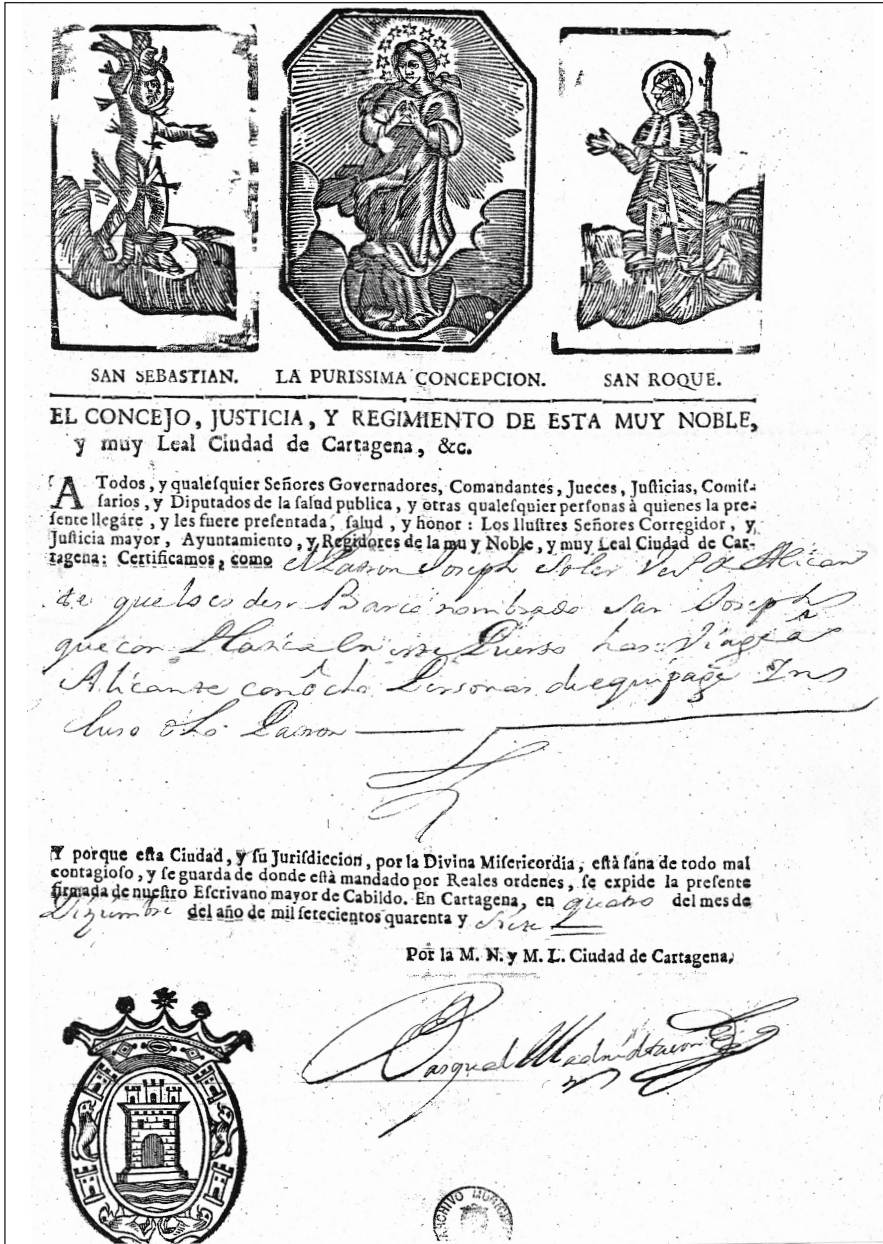 SAN SEBASTIAN. LA PURISSIMA CONCEPCION. SAN ROQUE.
EL CONCEJO, JUSTICIA, Y REGIMIENTO DE ESTA MUY NOBLE,
y muy Leal Ciudad de Cartagena, &c.
A Todos, y qualesquier Señores Governadores, Comandantes, Jueces, Justicias, Comis-
sarios, y Diputados de la salud publica, y otras qualesquier personas à quienes la pre-
sente llegáre, y les fuere presentada, salud, y honor: Los Ilustres Señores Corregidor, y
Justicia mayor, Ayuntamiento, y Regidores de la muy Noble, y muy Leal Ciudad de Car-
tagena: Certificamos, como el Patron Joseph Soler Vez.º de Alican
te que lo es de su Barco nombrado San Joseph
que con Platica en este Puerto haze Viage à
Alicante con ocho Personas de equipage Ins
cluso dho Patron
Y porque esta Ciudad, y su Jurisdiccion, por la Divina Misericordia, està sana de todo mal
contagioso, y se guarda de donde està mandado por Reales ordenes, se expide la presente
firmada de nuestro Escrivano mayor de Cabildo. En Cartagena, en quatro del mes de
Diziembre del año de mil setecientos quarenta y siete
Por la M. N. y M. L. Ciudad de Cartagena.
Pasqual
ARCHIVO MUNICIP